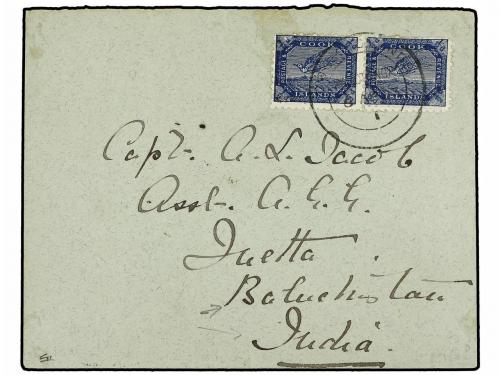 COOK
POSTAGE & REVENUE
ISLANDS
COOK
POSTAGE & REVENUE
ISLANDS
Capt. A. L. Jacob
Asst. A. G. G.
Quetta.
Baluchistan
India.